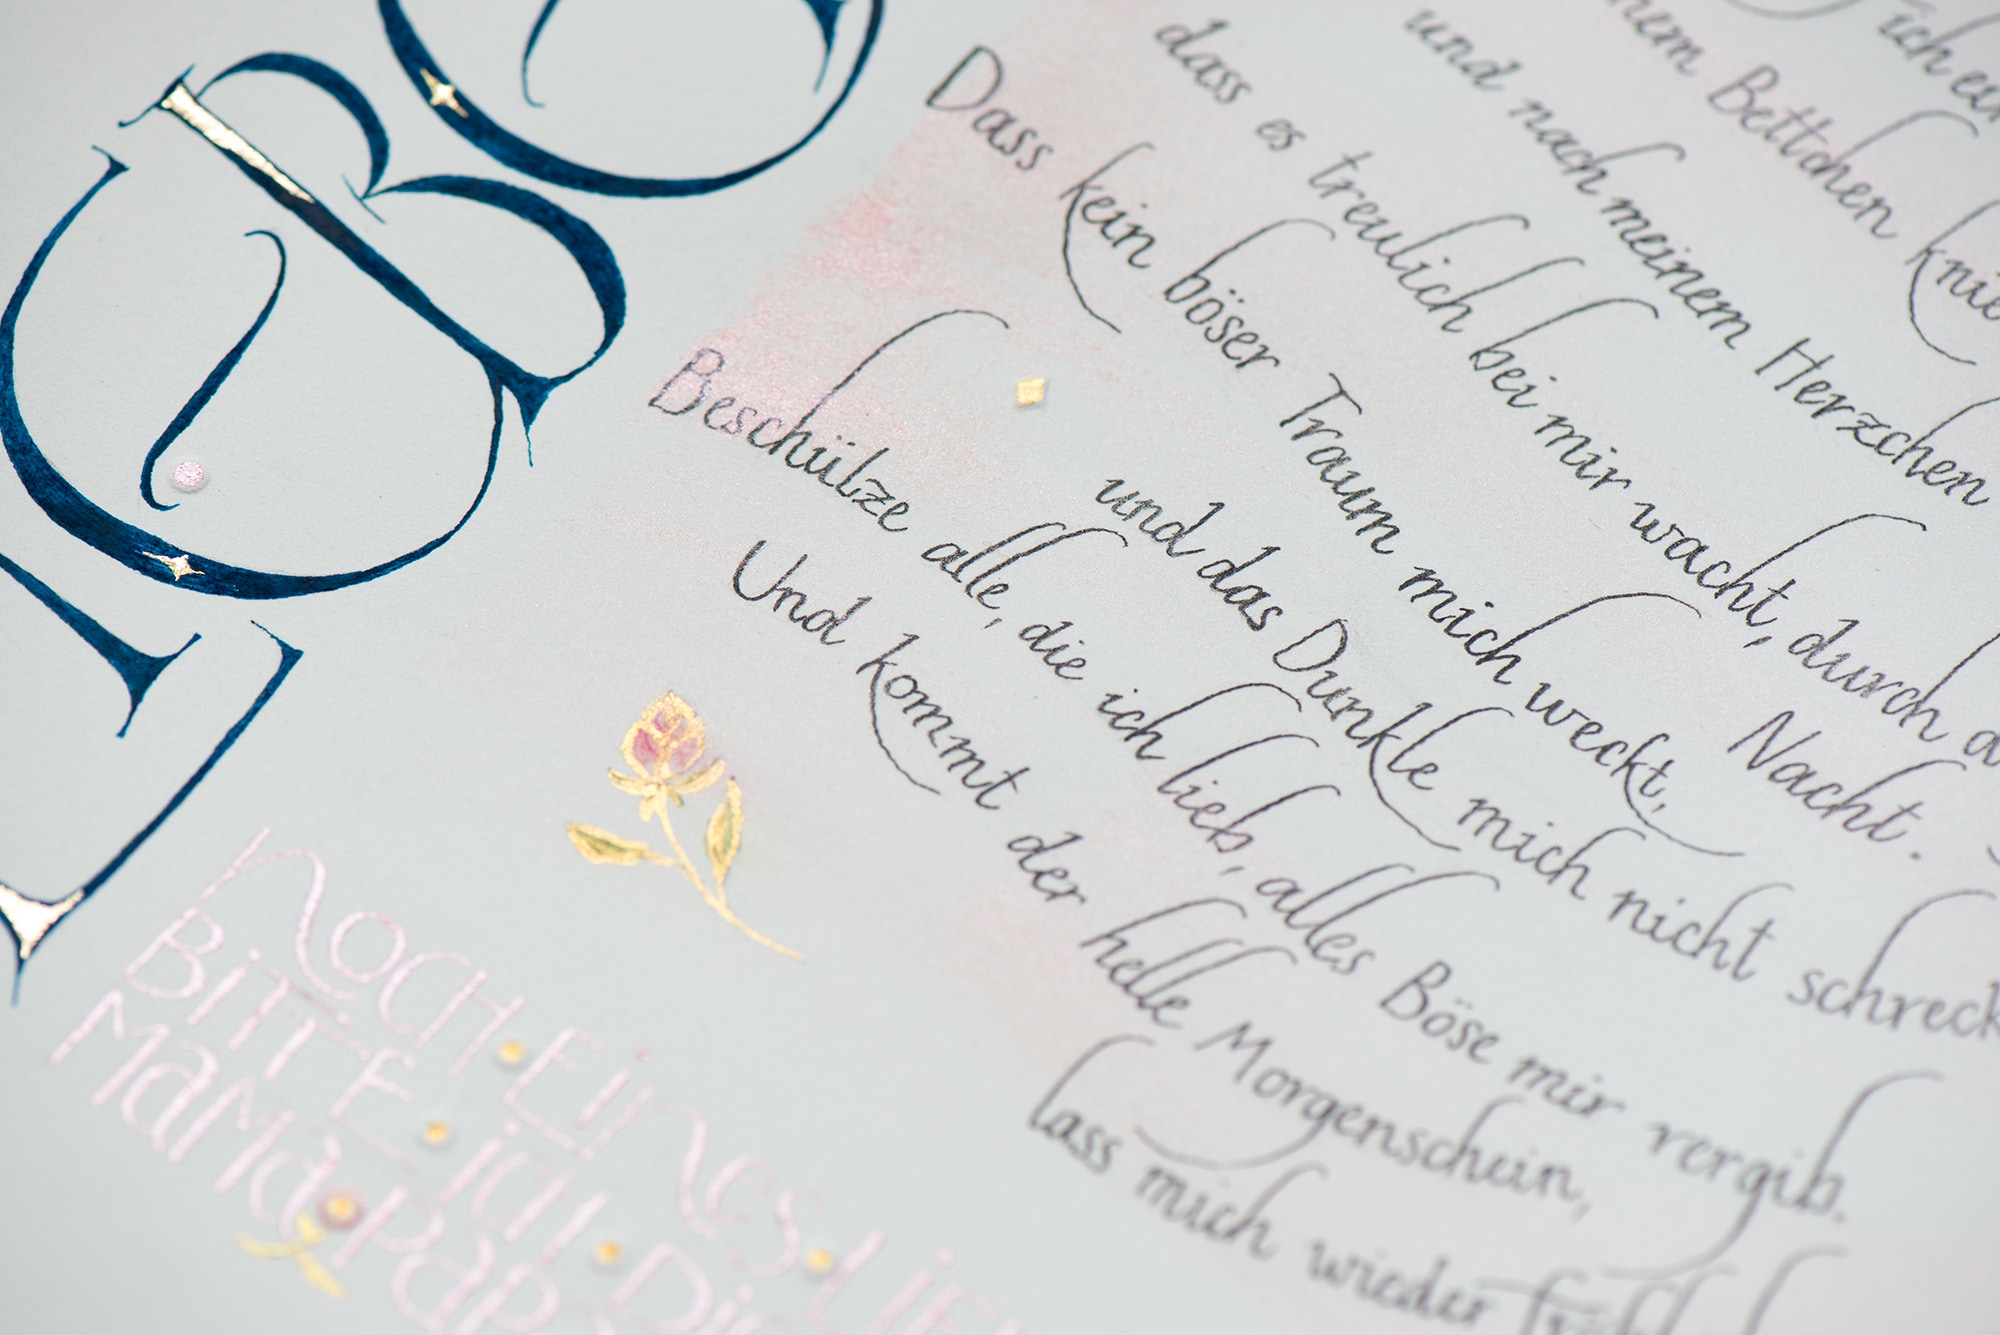 ich ein
nem Bettchen knie
und nach meinem Herzchen
dass es treulich bei mir wacht, durch d
Nacht.
Dass kein böser Traum mich weckt,
und das Dunkle mich nicht schreck
Beschütze alle, die ich lieb, alles Böse mir vergib.
Und kommt der helle Morgenschein,
lass mich wieder fröhl
Noch · Eines · Lie
Bitte · ich · Di
Mama · Pap